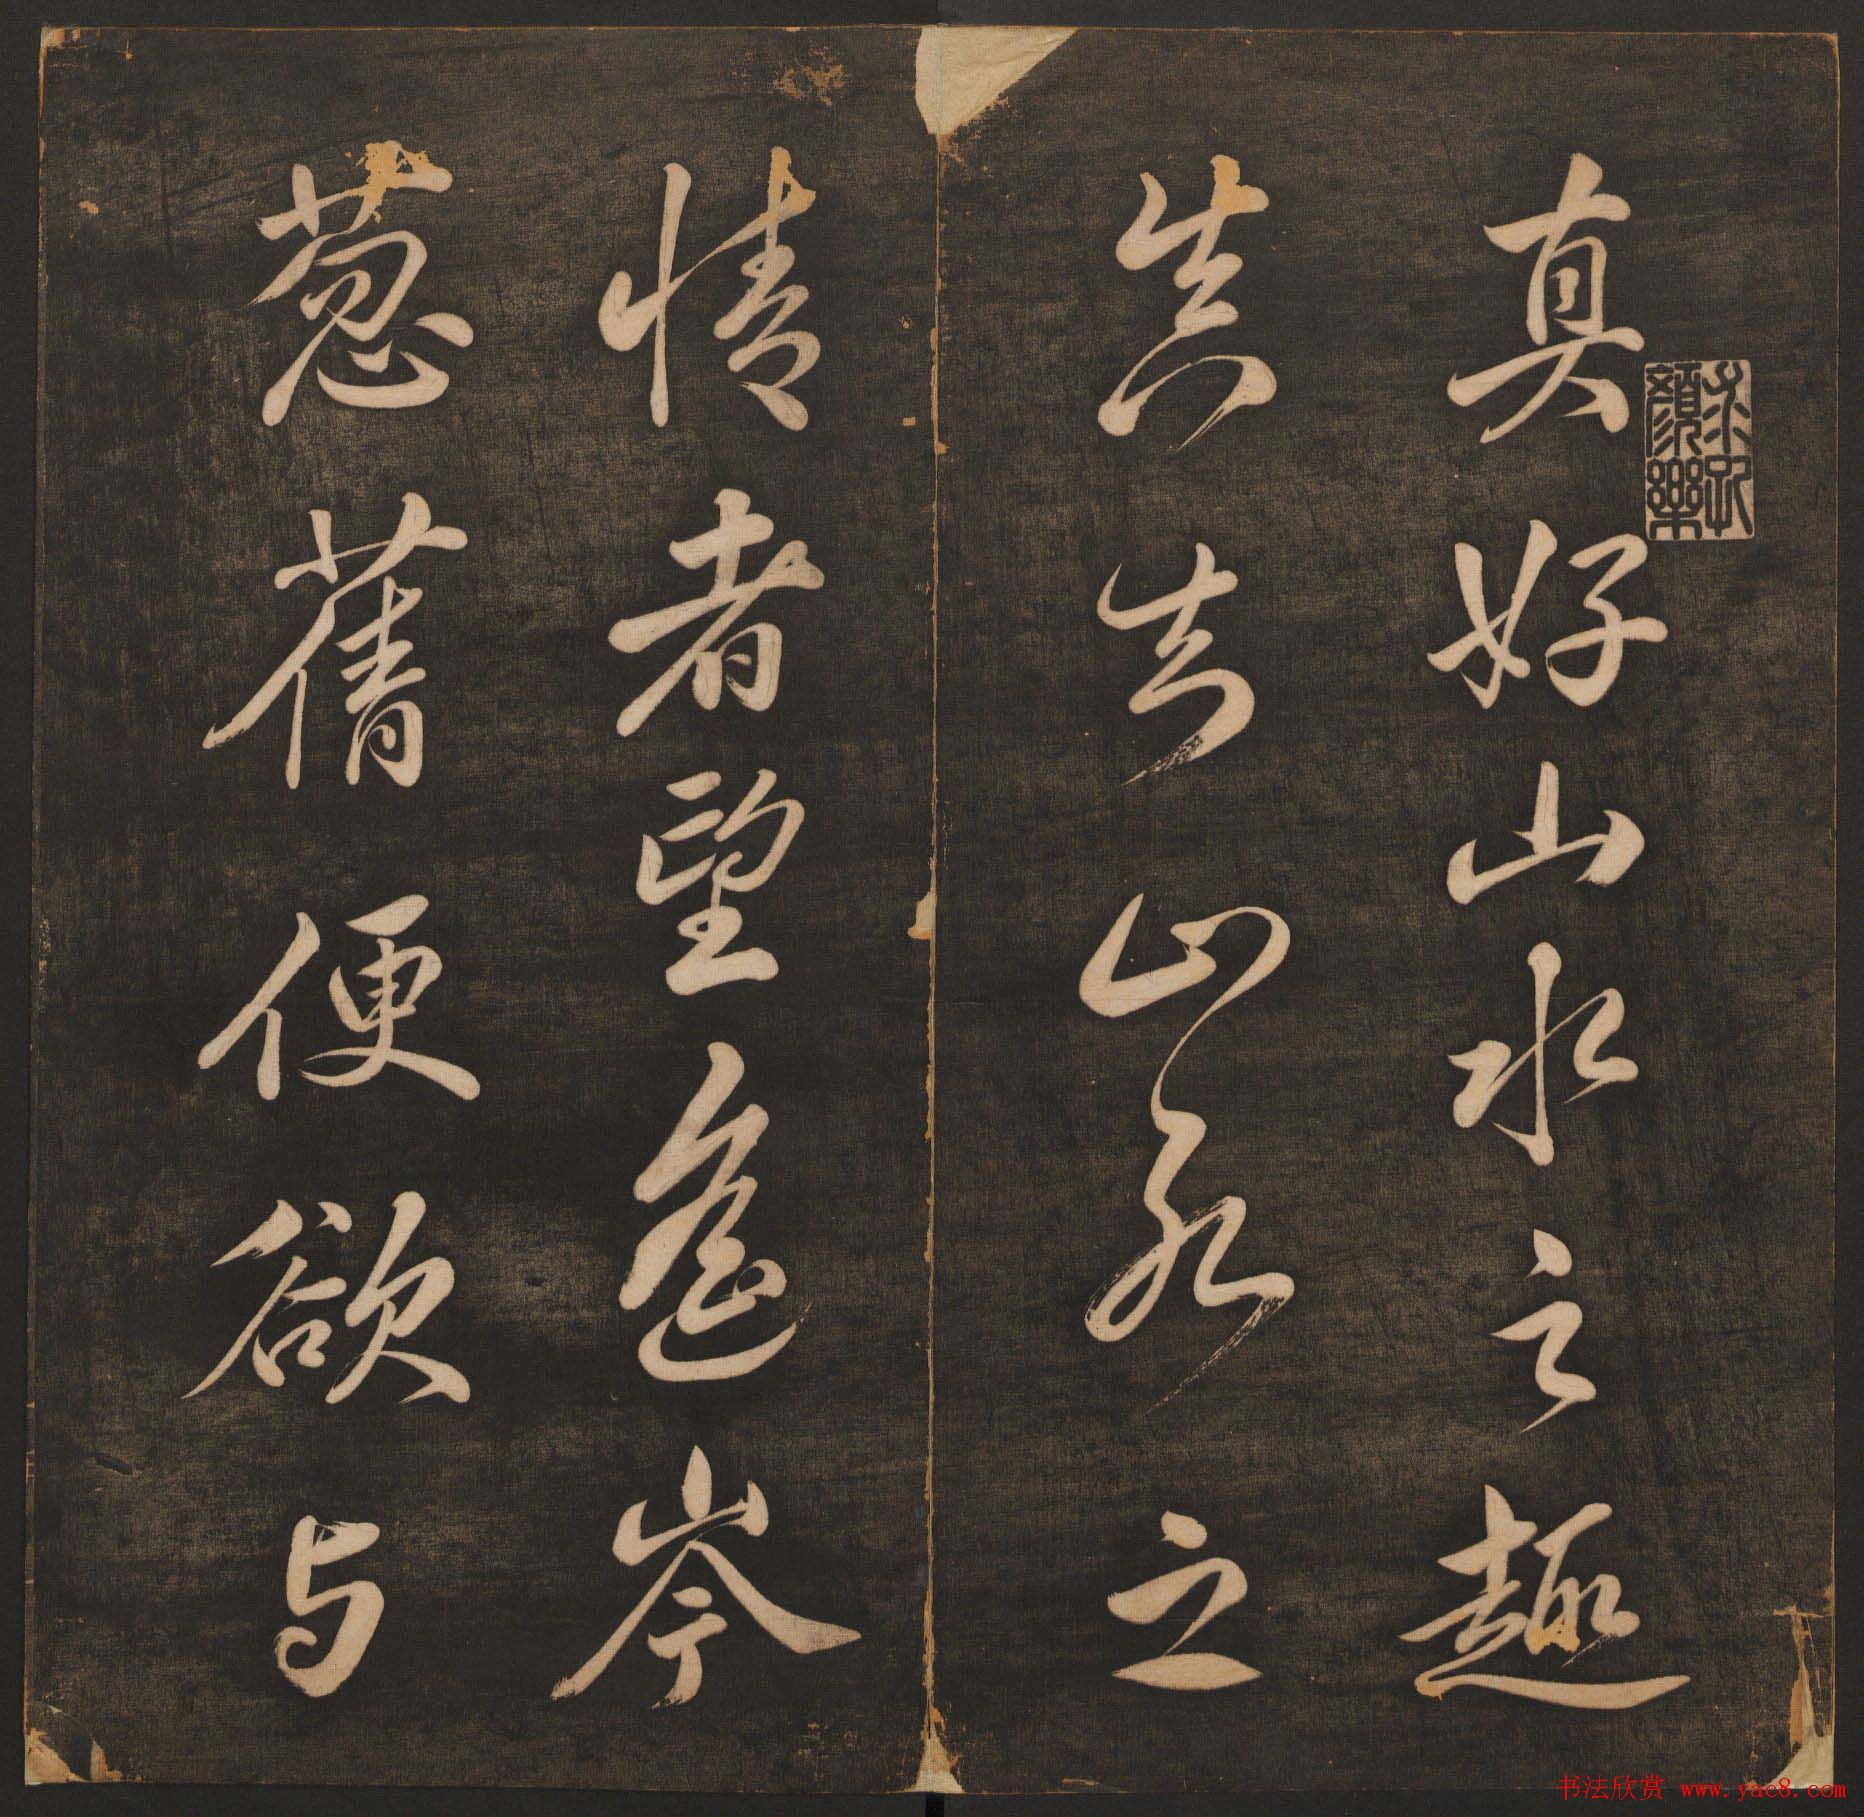 真好山水之趣
真知山水之
情者望危岑
葱蒨便欲与
书法欣赏 www.yac8.com